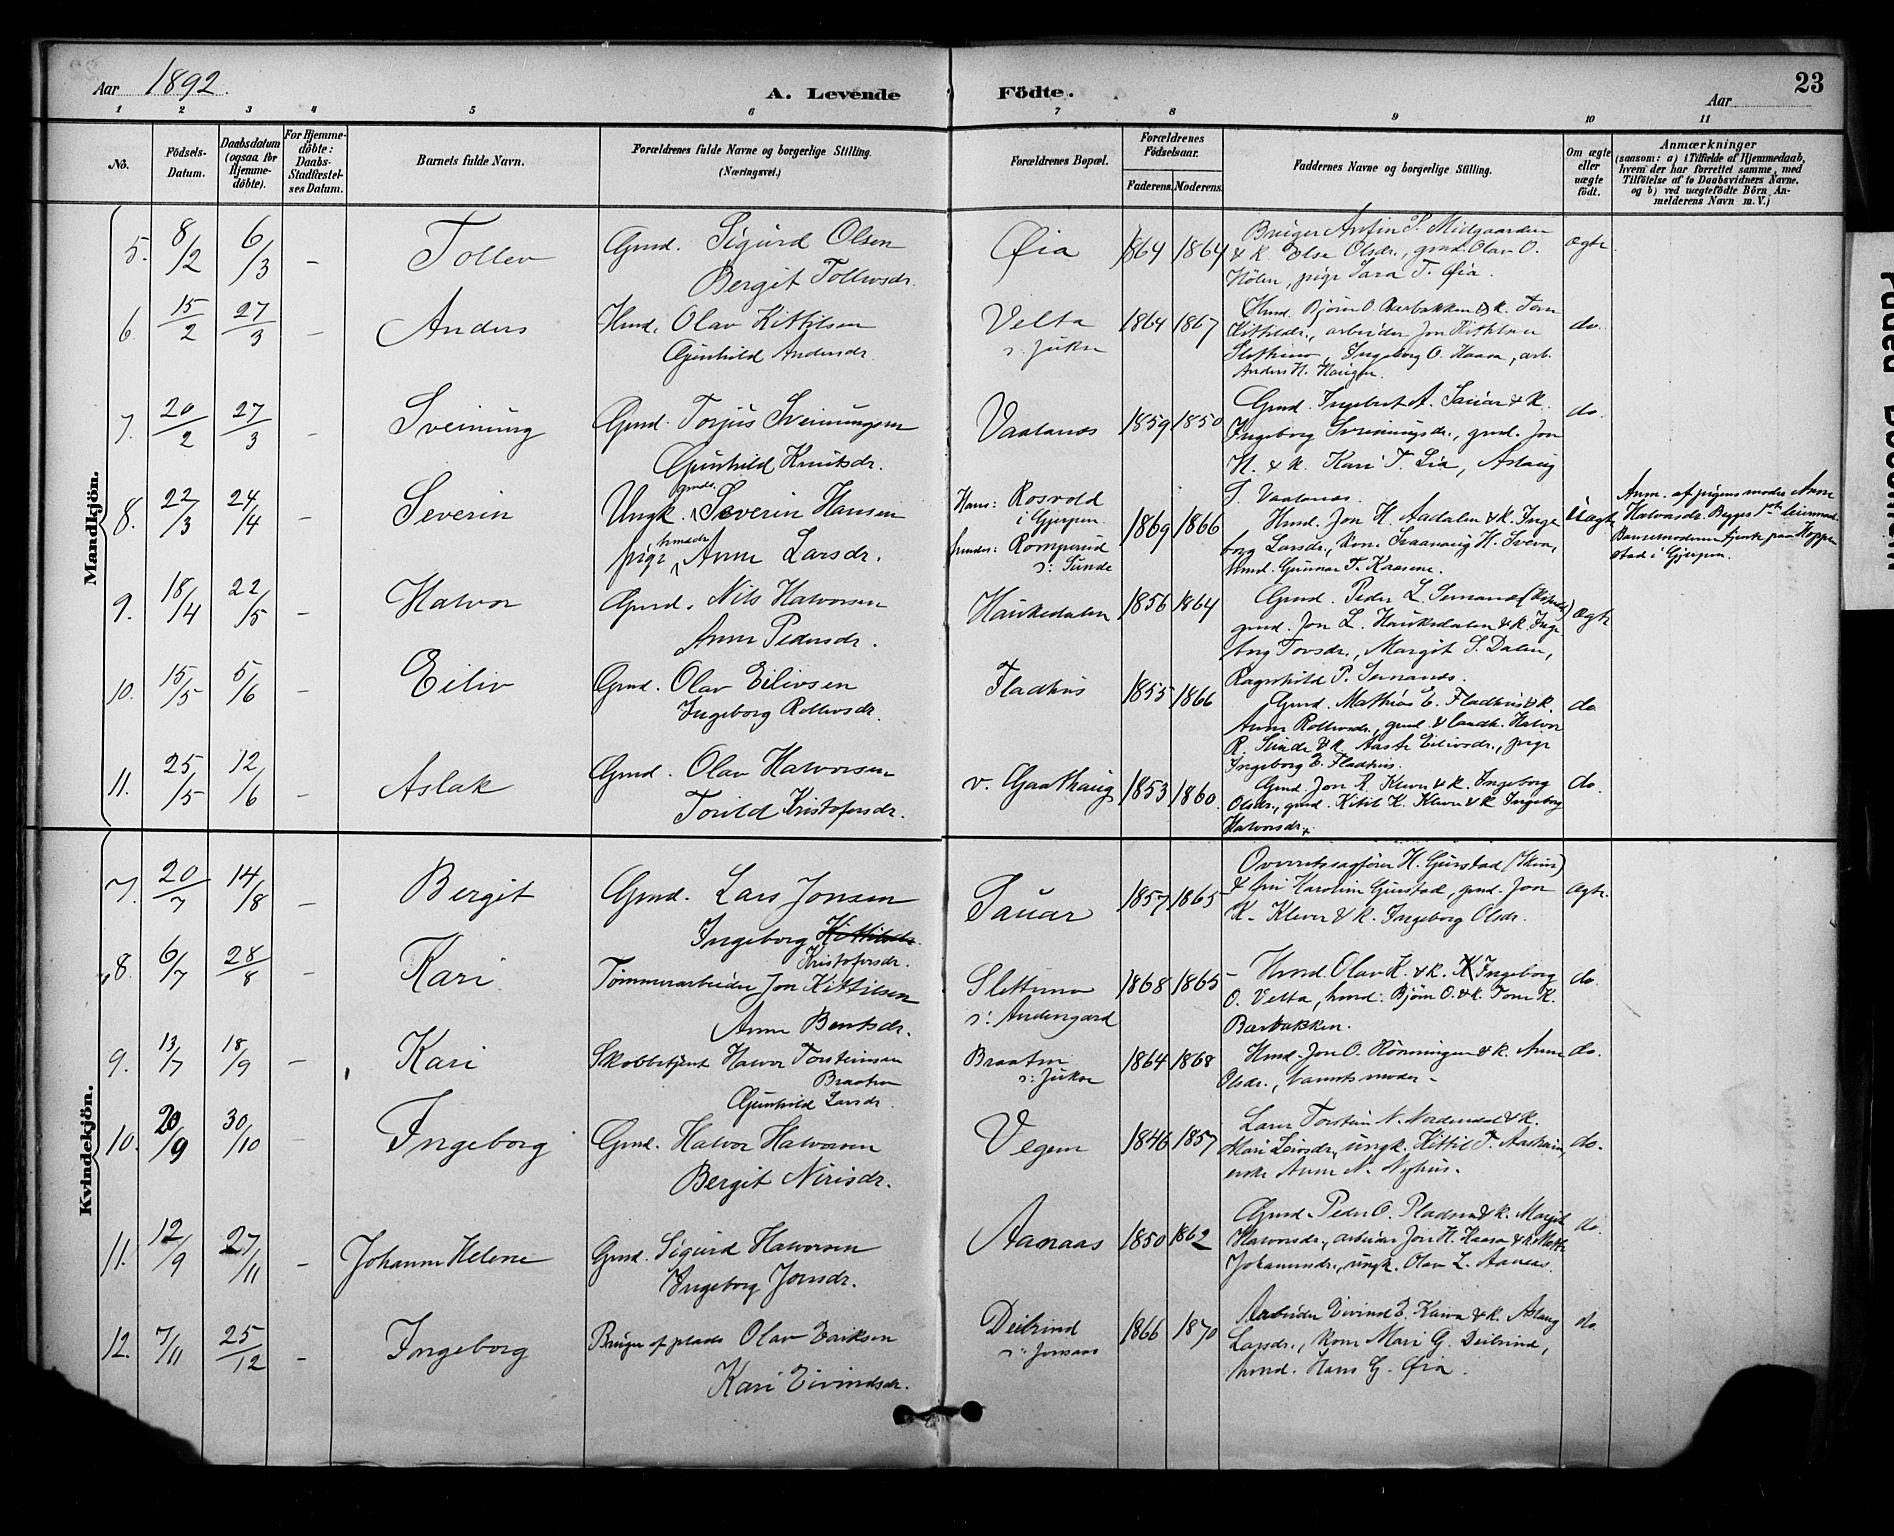 Aar 1892.
A. Levende Födte.
Aar
23
1 2 3 4 5 6 7 8 9 10 11
No.
Födsels-Datum.
Daabsdatum (ogsaa for Hjemme-döbte).
For Hjemme-döbte: Daabs-Stadfæstel-ses Datum.
Barnets fulde Navn.
Forældrenes fulde Navne og borgerlige Stilling. (Næringsvei.)
Forældrenes Bopæl.
Forældrenes Födselsaar.
Faderens. Moderens.
Faddernes Navne og borgerlige Stilling.
Om ægte eller uægte födt.
Anmærkninger
(saasom: a) i Tilfælde af Hjemmedaab,
hvem der har forrettet samme, med
Tilföielse af to Daabsvidners Navne,
og b) ved uægtefödte Börn An-
melderens Navn m. V.)
Mandkjön.
5. 8/2 6/3 - Tollev Gmd. Sigurd Olsen
Bergit Tollevsdr.
Øia 1864 1864
Bruger Anfin P. Midgaarden
& k. Else Olsdr., gmd. Olav O.
Holen, pige Sara T. Øia.
ægte
6 15/2 27/3 - Anders Hmd. Olav Kittilsen
Gunhild Andersdr.
Velta
s: Jukse
1864 1867
Hmd. Bjørn O. Barbakken & k. Tone
Kittilsdr., arbeider Jon Kittilsen
Slettuna, Ingeborg O. Haasa, arb.
Anders H. Haugen.
do.
7. 20/2 27/3 - Sveinung Gmd. Torjus Sveinungsen
Gunhild Knutsdr.
Vaalanes 1859 1850
Gmd. Ingebret A. Sauar & k.
Ingeborg Sveinungsdr., gmd. Jon
H. & k. Kari T. Lia, Aslaug
S. Vaalanes.
do.
8. 22/3 24/4 - Severin Ungk. gmds. Severin Hansen
pige hmsdr Anne Larsdr.
Hans: Rosvold
i Gjerpen.
hendes: Romperud
s: Sunde
1869 1866
Hmd. Jon H. Aadalen & k. Inge
borg Larsdr., kone Svanaug H. Sveva,
hmd. Gunnar T. Kaasene.
Uægte
Anm. af pigens moder Anne
Halvorsdr. Begges 1ste leiermaal.
Barnemoderen tjente paa Hoppe
stad i Gjerpen.
9. 18/4 22/5 - Halvor Gmd. Nils Halvorsen
Anne Pedersdr.
Haukedalen 1856 1864
Gmd. Peder L. Semanes
gmd. Jon L. Haukedalen & k. Inge
borg Torsdr., Margit S. Dalen,
Ragnhild P. Semanes.
ægte
10. 15/5 5/6 - Eiliv Gmd. Olav Eilivsen
Ingeborg Rollevsdr.
Fladhus 1855 1866
Gmd. Mathias E. Fladhus & k.
Anne Rollevsdr., gmd. & landh. Halvor
R. Sunde & k. Aaste Eilivsdr., pige
Ingeborg E. Fladhus.
do
11. 25/5 12/6 - Aslak Gmd. Olav Halvorsen
Torild Kristofersdr.
v. Gaathaug 1853 1860.
Gmd Jon K. Kleven & k. Ingeborg
Olsdr., gmd. Kitil K. Kleven & k. Ingeborg
Halvorsdr.
do.
Kvindekjön.
7. 20/7 14/8 - Bergit Gmd. Lars Jonsen
Ingeborg Kittilsdr.
Kristofersdr.
Sauar 1857 1865
Overretssagfører H. Gurstad (Skien)
& fru Karoline Gurstad, gmd. Jon
K. Kleven & k. Ingeborg Olsdr.
ægte.
8. 6/7 28/8 - Kari Tømmerarbeider Jon Kittilsen
Anne Bentsdr.
Slettuna
s: Andengard
1868 1865
- Hmd. Olav K. & k. Ingeborg
O. Velta, hmd. Bjørn O. & k. Tone K.
Barbakken.
do.
9. 13/7 18/9 - Kari Skobbetjent Halvor Torsteinsen
Braaten
Gunhild Larsdr.
Braaten
s: Jukse
1864 1868
Hmd. Jon O. Rønningen & k. Anne
Olsdr., barnets moder -
do.
10. 20/9 30/10 - Ingeborg Gmd. Halvor Halvorsen
Bergit Nirisdr.
Vegem 1846 1857
Lærer Torstein N. Nordendal & k.
Mari Leivsdr., ungk. Kittil T. Aarhein,
enke Anne N. Nyhus.
do.
11. 12/9 27/11 - Johanne Helene Gmd. Sigurd Halvorsen
Ingeborg Jonsdr.
Aanaas 1850 1862
Gmd. Peder O. Pladsen & k. Margit
Halvorsdr., arbeider Jon H. Kaasa & k. Mette
Johannesdr., ungk. Olav L. Aanaas.
do.
12. 7/11 25/12 - Ingeborg Bruger af plads Olav Eriksen
Kari Eivindsdr.
Deilrind
s: Jonsaas
1866 1870
Arbeider Eivind E. Kaasa & k. Aslaug
Larsdr., kone Mari G. Deilrind,
hmd. Hans G. Øia.
do